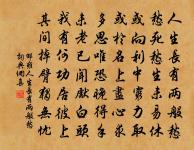 人生長有兩般愁
愁死愁生未易休
或向利中窮力取
或於名上盡心求
多思唯恐晚得手
未老已聞白頭
我有何功居彼上
其間掉臂獨無憂
邵雍人生長有兩般愁
詞典網集